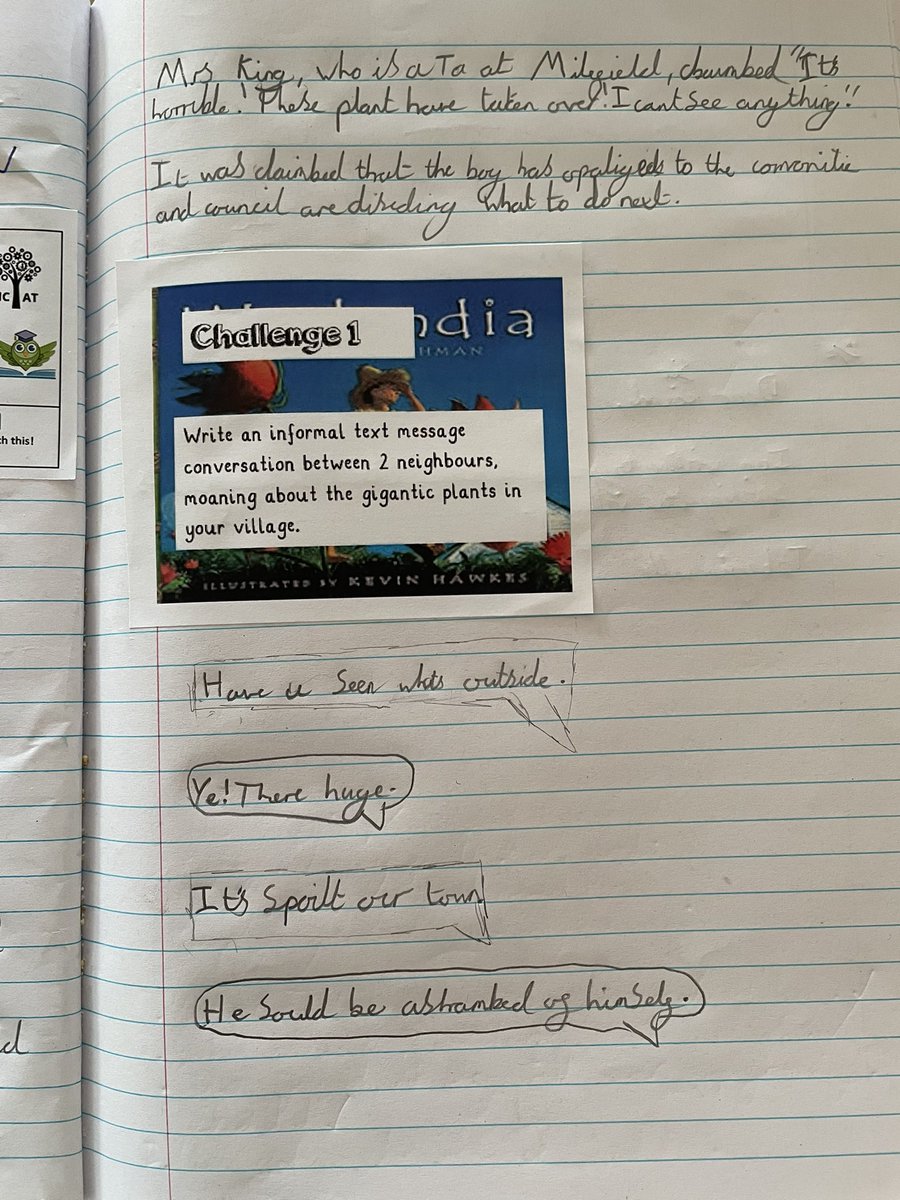 Mrs King, who is a Ta at Milefield, claimbed "It's
horrible! These plant have taken over! I cant see anything!"
It was claimbed that the boy has opaligeds to the comonitie
and council are diseding what to do next.
AT
ch this!
Challenge 1
ndia
HMAN
Write an informal text message
conversation between 2 neighbours,
moaning about the gigantic plants in
your village.
ILLUSTRATED BY KEVIN HAWKES
Have u seen whats outside.
Ye! There huge.
It's spoilt our town
He sould be ashambed of himself.